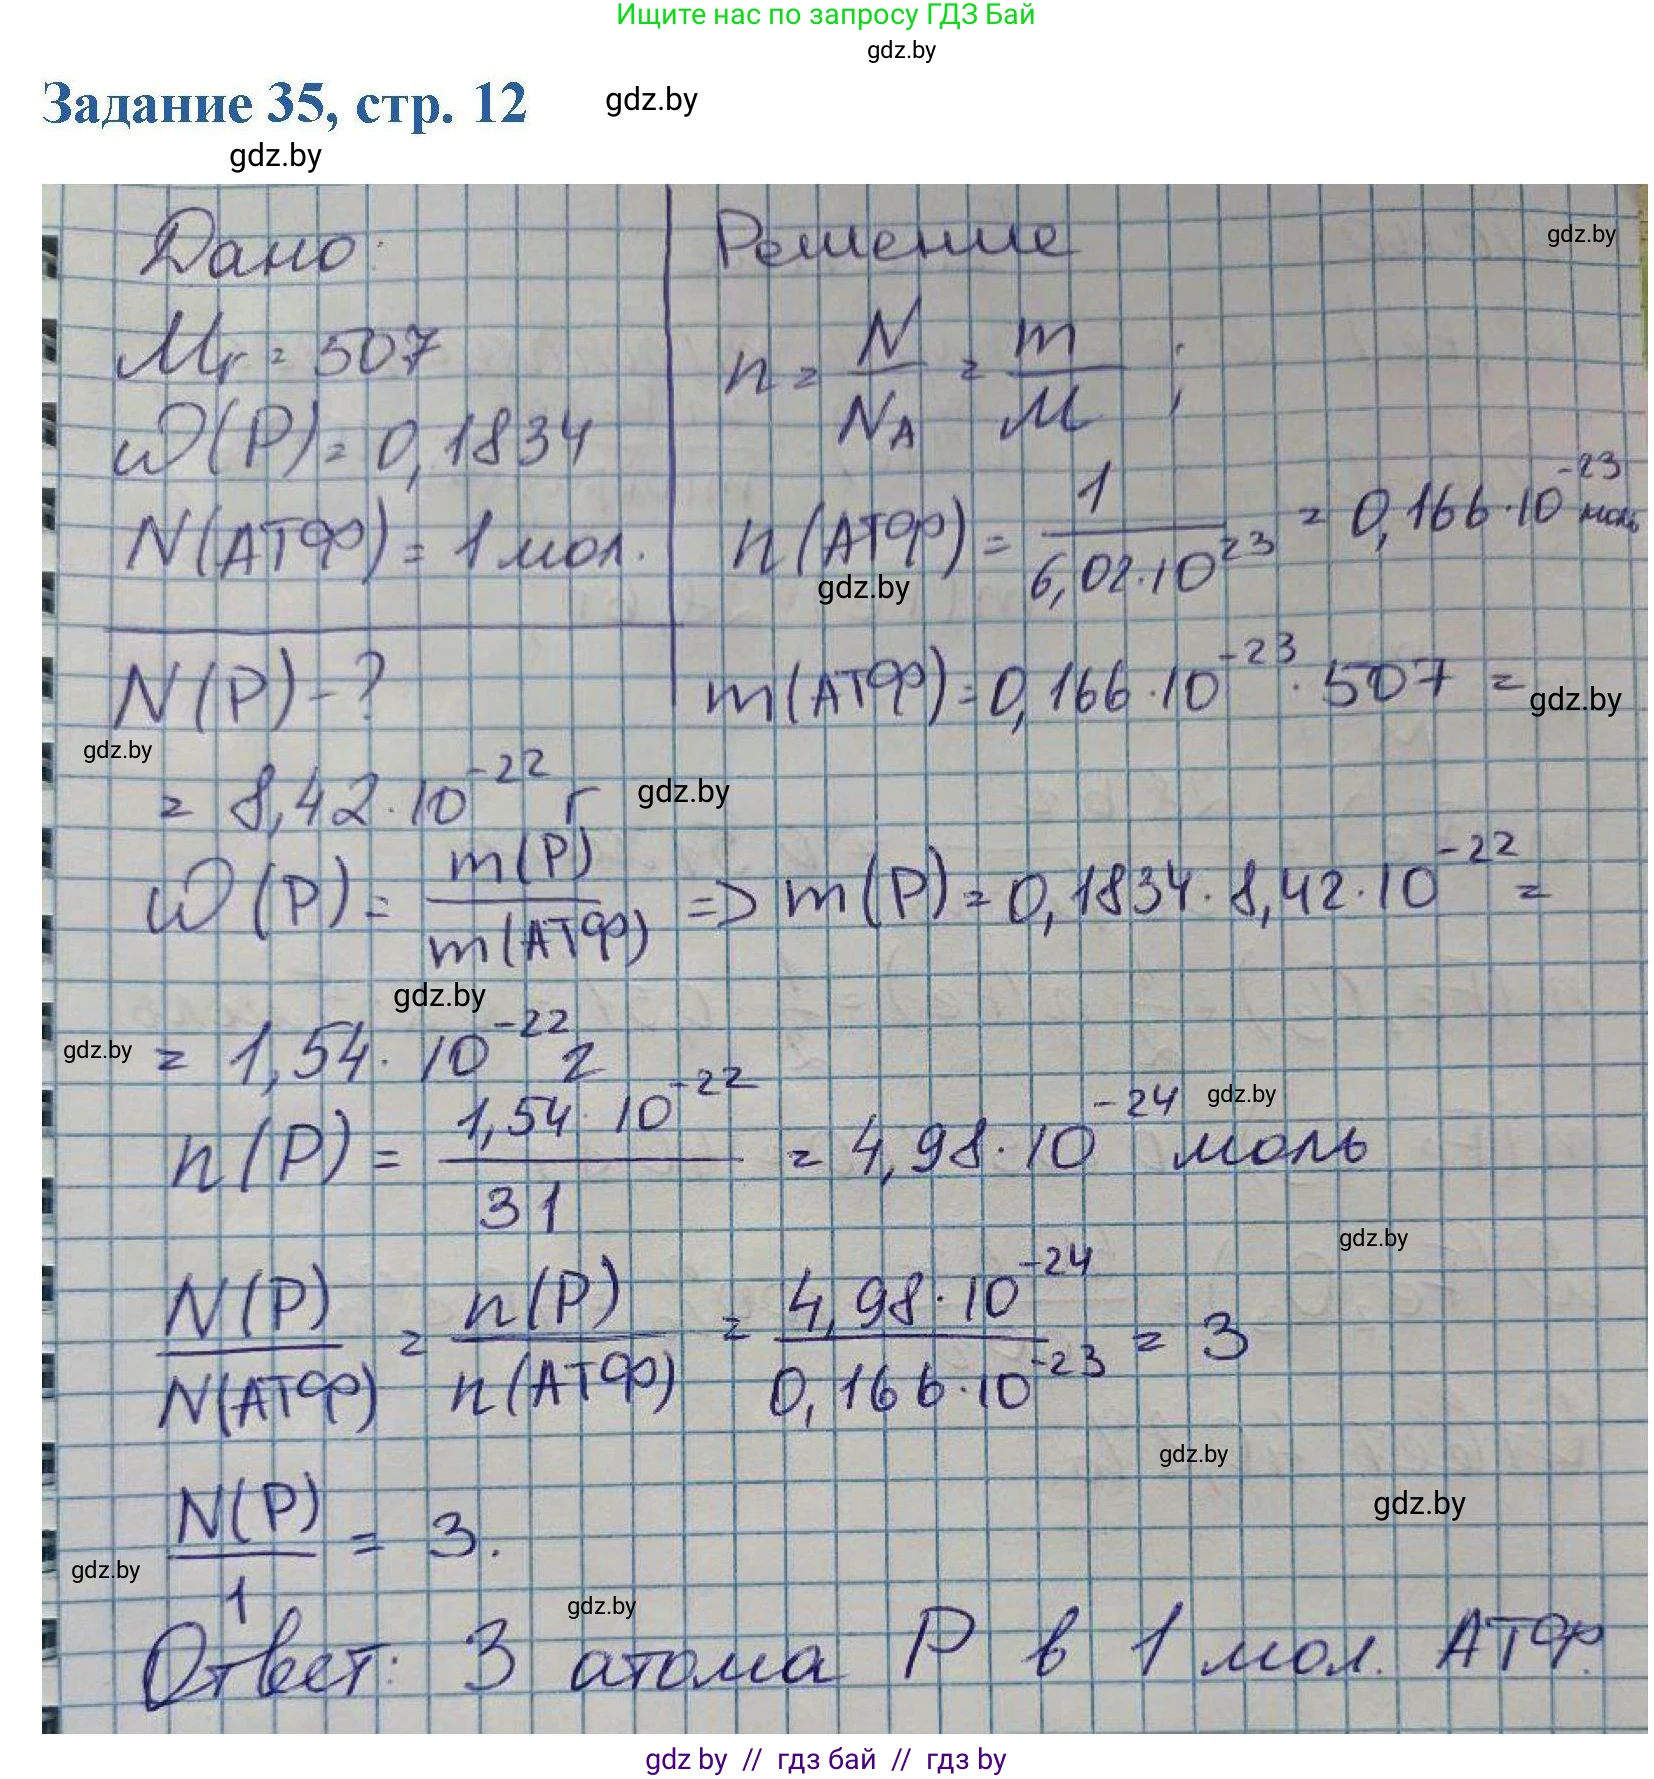 Ищите нас по запросу ГДЗ Бай
gdz.by
Задание 35, стр. 12 gdz.by
gdz.by
Дано: Решение gdz.by
Mr = 507 n = N/N_A = m/M ;
ω(P) = 0,1834
N(АТФ) = 1 мол. n(АТФ) = 1/(6,02·10^23) = 0,166·10^-23 моль
gdz.by
N(P) - ? m(АТФ) = 0,166·10^-23 · 507 = gdz.by
gdz.by
= 8,42·10^-22 г gdz.by
ω(P) = m(P)/m(АТФ) => m(P) = 0,1834 · 8,42·10^-22 =
gdz.by
gdz.by = 1,54·10^-22 г
n(P) = 1,54·10^-22/31 = 4,98·10^-24 моль gdz.by
gdz.by
N(P)/N(АТФ) = n(P)/n(АТФ) = 4,98·10^-24/0,166·10^-23 = 3
gdz.by
gdz.by
N(P)/1 = 3.
gdz.by
gdz.by
Ответ: 3 атома P в 1 мол. АТФ.
gdz by // гдз бай // гдз by